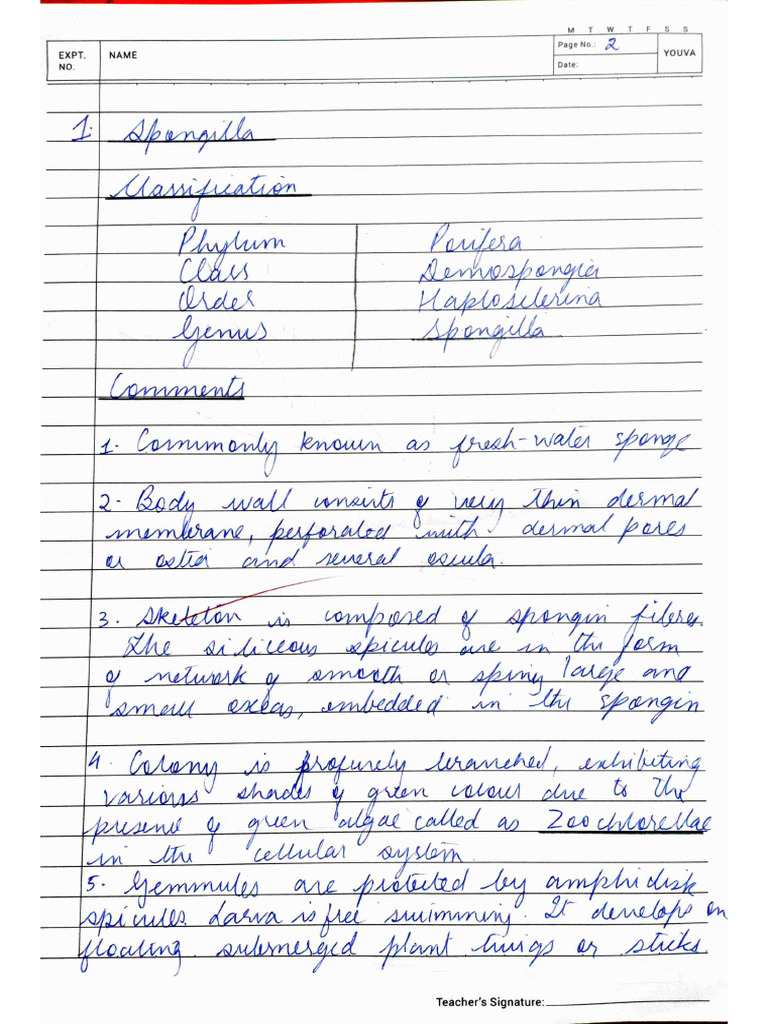 M T W T F S S
EXPT. NO.
NAME
Page No.: 2
Date:
YOUVA
1. Spongilla
Classification
Phylum Porifera
Class Demospongia
Order Haplosclerina
Genus Spongilla
Comments
1. Commonly known as fresh-water sponge
2. Body wall consists of very thin dermal
membrane, perforated with dermal pores
or ostia and several oscula.
3. Skeleton is composed of spongin fibres.
The siliceous spicules are in the form
of network of smooth or spiny large and
small oxeas, embedded in the spongin
4. Colony is profusely branched, exhibiting
various shades of green colour due to the
presence of green algae called as Zoochlorellae
in the cellular system.
5. Gemmules are protected by amphidisk
spicules. Larva is free swimming. It develops on
floating submerged plant twigs or sticks.
Teacher's Signature: